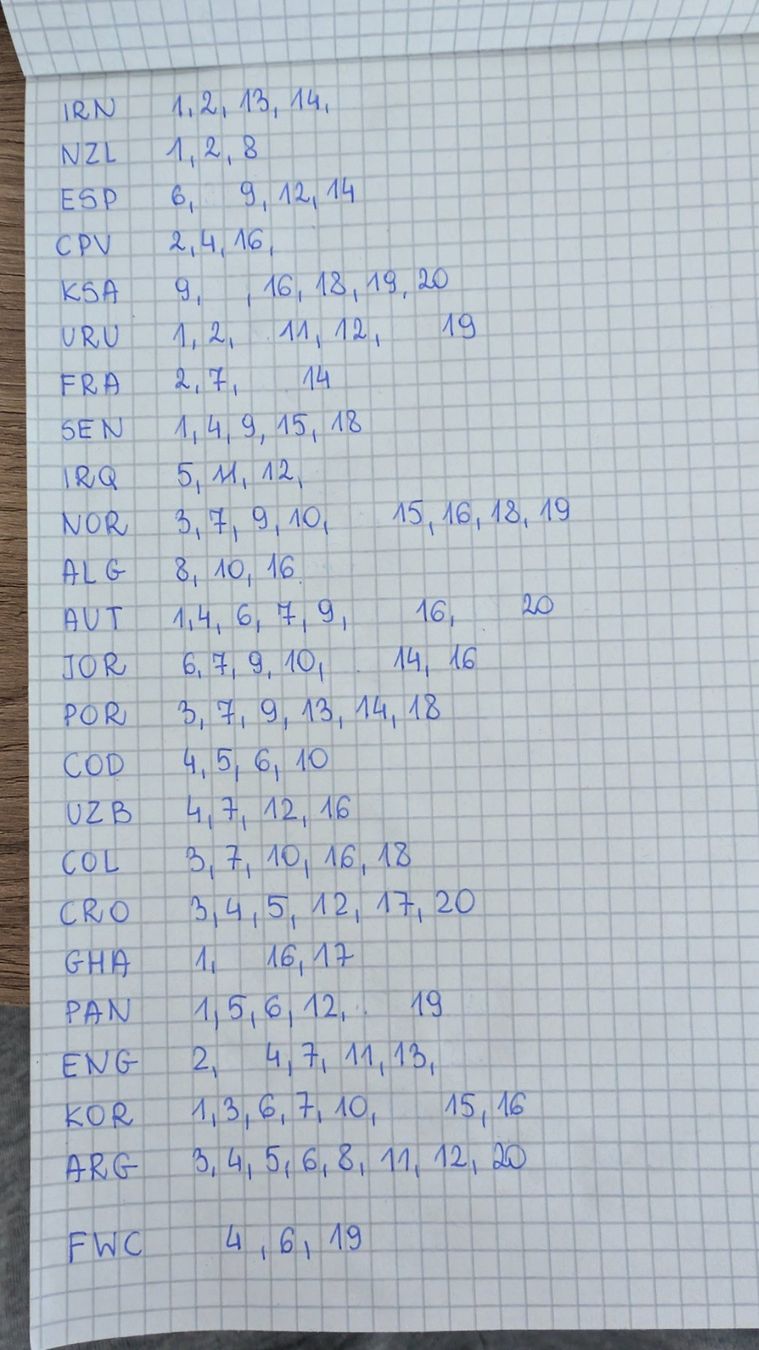 IRN 1, 2, 13, 14,
NZL 1, 2, 8
ESP 6, 9, 12, 14
CPV 2, 4, 16,
KSA 9, , 16, 18, 19, 20
URU 1, 2, 11, 12, 19
FRA 2, 7, 14
SEN 1, 4, 9, 15, 18
IRQ 5, 11, 12,
NOR 3, 7, 9, 10, 15, 16, 18, 19
ALG 8, 10, 16
AUT 1, 4, 6, 7, 9, 16, 20
JOR 6, 7, 9, 10, 14, 16
POR 3, 7, 9, 13, 14, 18
COD 4, 5, 6, 10
UZB 4, 7, 12, 16
COL 3, 7, 10, 16, 18
CRO 3, 4, 5, 12, 17, 20
GHA 1, 16, 17
PAN 1, 5, 6, 12, 19
ENG 2, 4, 7, 11, 13,
KOR 1, 3, 6, 7, 10, 15, 16
ARG 3, 4, 5, 6, 8, 11, 12, 20
FWC 4, 6, 19